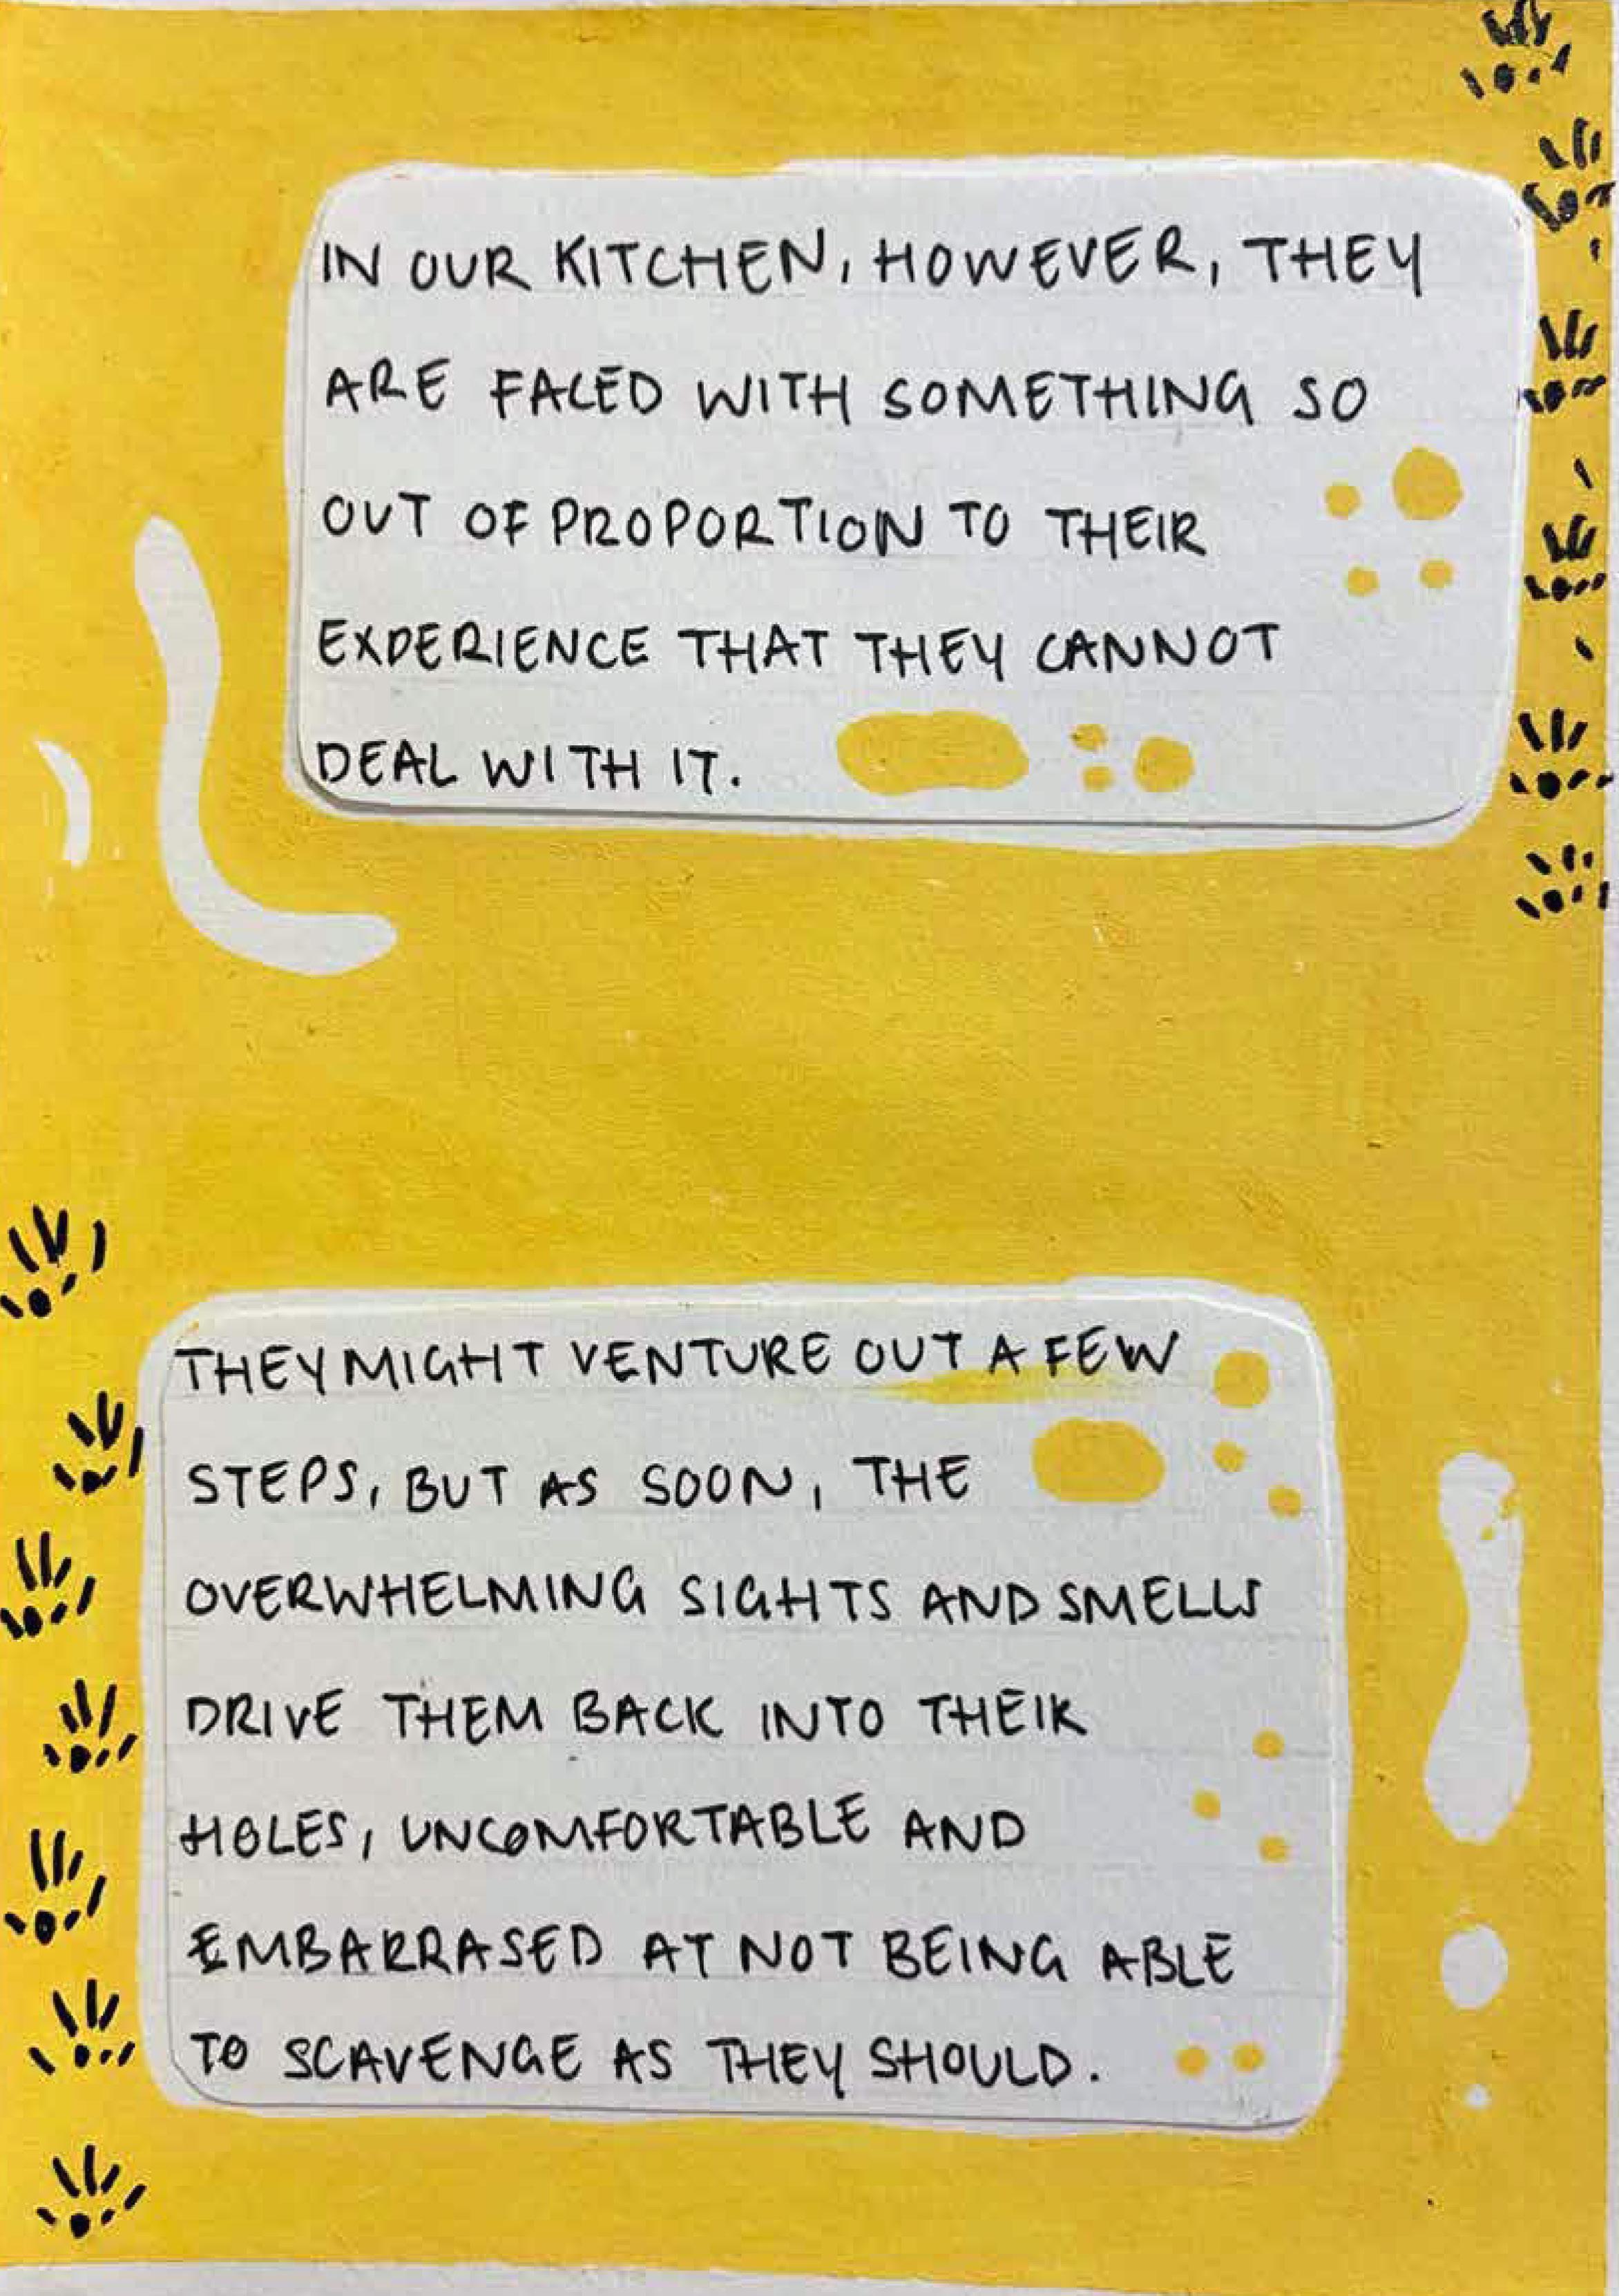 IN OUR KITCHEN, HOWEVER, THEY
ARE FACED WITH SOMETHING SO
OUT OF PROPORTION TO THEIR
EXPERIENCE THAT THEY CANNOT
DEAL WITH IT.
THEY MIGHT VENTURE OUT A FEW
STEPS, BUT AS SOON, THE
OVERWHELMING SIGHTS AND SMELLS
DRIVE THEM BACK INTO THEIR
HOLES, UNCOMFORTABLE AND
EMBARRASED AT NOT BEING ABLE
TO SCAVENGE AS THEY SHOULD.